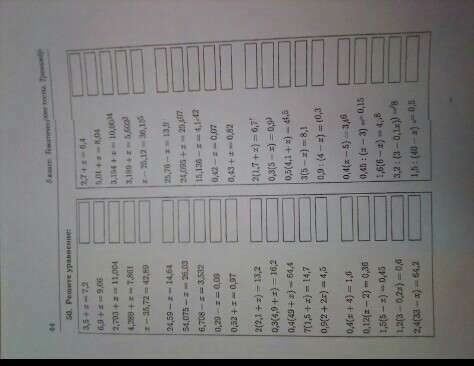 44
5 класс. Тематические тесты. Тренажёр
50. Решите уравнение:
3,5 + x = 7,2
6,9 + x = 9,06
2,703 + x = 11,004
4,289 + x = 7,861
x − 35,72 = 42,89
24,59 − x = 14,64
54,075 − x = 26,03
6,708 − x = 3,532
0,29 − x = 0,09
0,52 + x = 0,97
2(2,1 + x) = 13,2
0,3(4,9 + x) = 16,2
0,4(49 − x) = 64,4
7(1,5 + x) = 14,7
0,9(2 + 2x) = 4,5
0,4(x + 4) = 1,6
0,12(x − 2) = 0,36
1,5(5 − x) = 0,45
1,2(3 − 0,2x) = 0,6
2,4(33 − x) = 64,2
2,7 + x = 6,4
5,01 + x = 8,04
3,154 + x = 10,0034
3,189 + x =
x − 25,12 =
25,76 − x = 13,
24,095 − x =
15,136 − x =
0,42 − x = 0,07
0,43 + x = 0,82
2(1,7 + x) = 6,
0,3(5 − x) = 0,
0,5(4,1 + x) =
3(5 − x) = 8,1
0,9 : (4 − x) =
0,4(x − 5) =
0,45 : (x − 3) = 0,15
1,6(6 − x) = 4,8
3,2 : (3 − 0,1x) = 8
1,5 : (40 − x) =